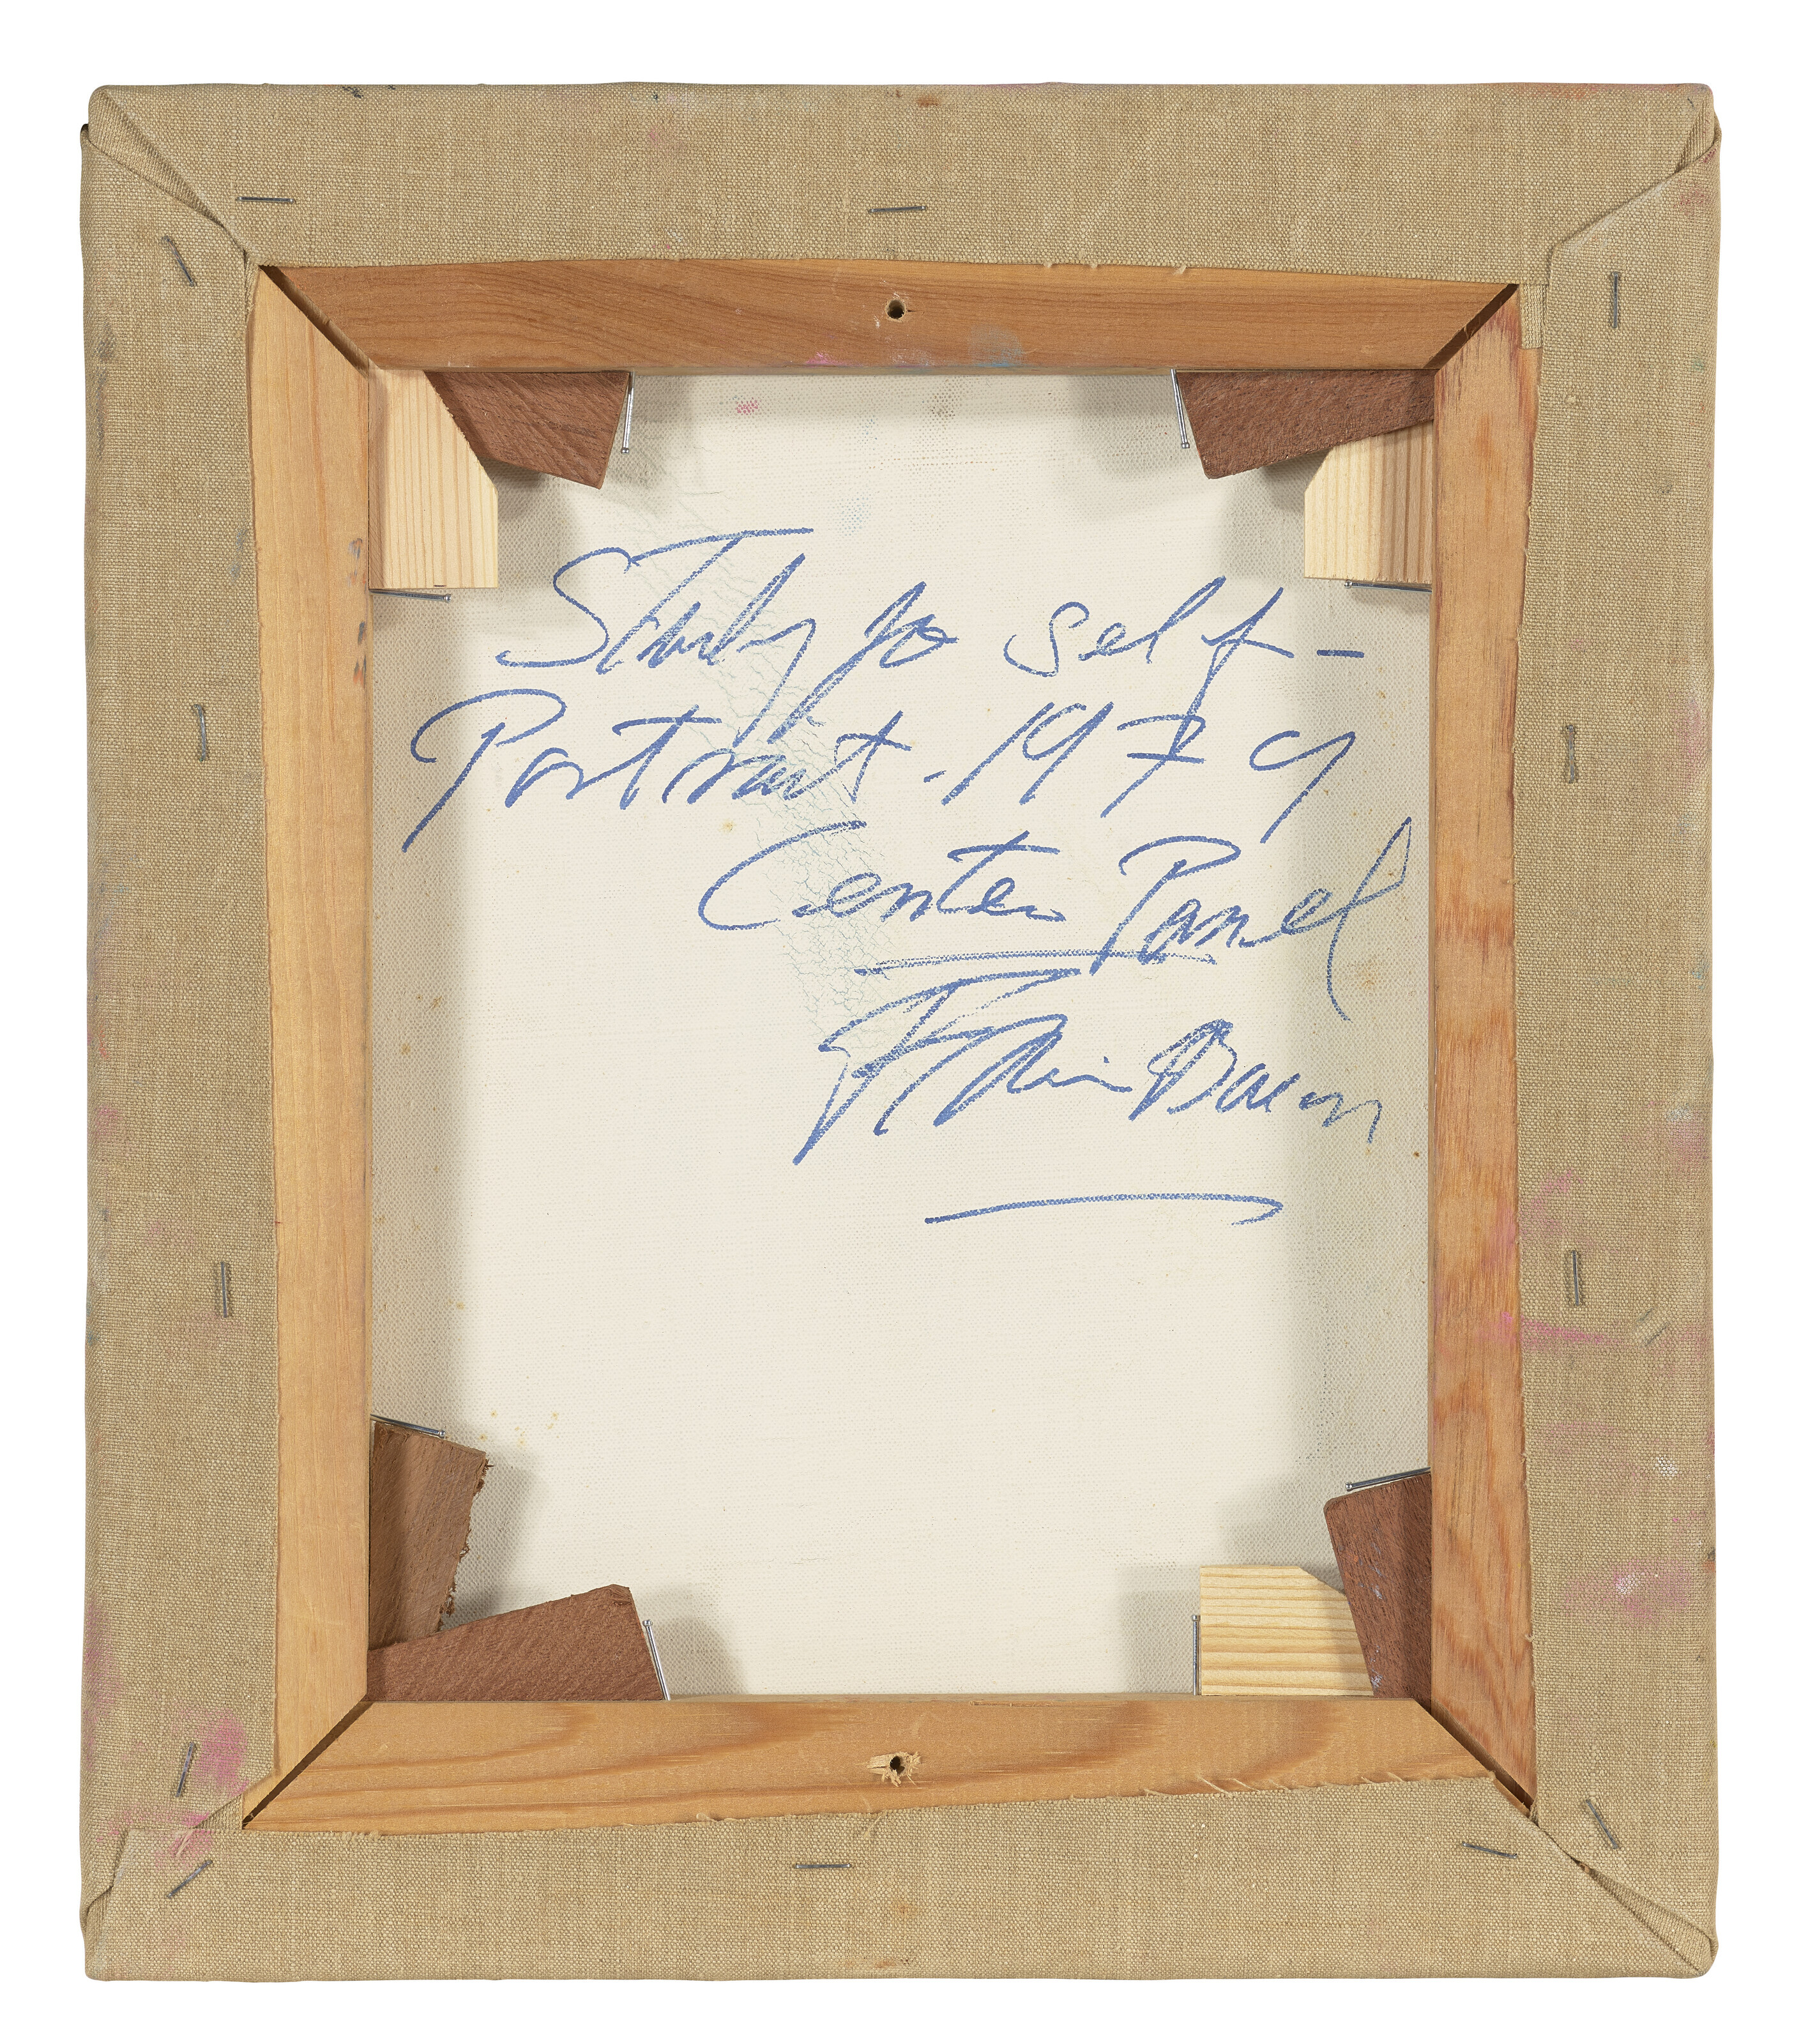 Study for self-
Portrait. 1979
Center Panel
Francis Bacon